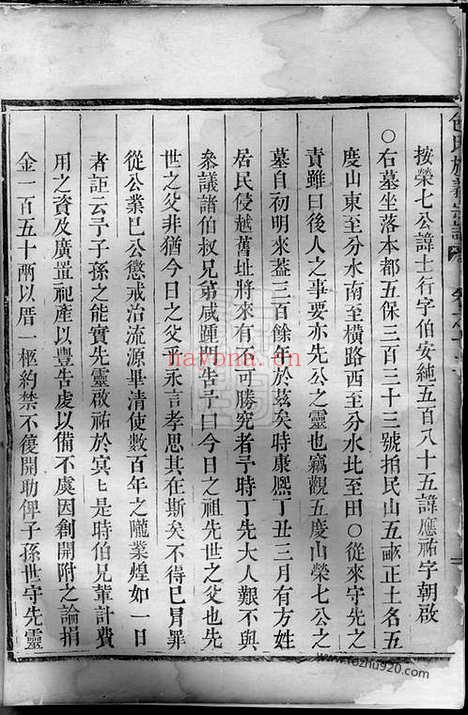 按榮七公諱士行字伯安純五百八十五諱應祐字朝啟
○右墓坐落本都五保三百三十三號拍民山五畝正土名五
度山東至分水南至橫路西至分水北至田○從來守先之
責雖曰後人之事要亦先公之靈也竊觀五度山榮七公之
墓自初明來葢三百餘年於茲矣時康熈丁丑三月有方姓
居民侵越舊址將來有不可勝究者予時丁先大人艱不與
叅議諸伯叔兄弟咸踵門告予曰今日之祖先世之父也先
世之父非猶今日之父乎永言孝思其在斯矣不得已冐罪
從公業已公懲戒治流源畢清使數百年之隴業煌如一日
者詎云予子孫之能實先靈啟祐於冥冥也是時伯兄輩計費
用之資及廣置祀產以豐告處以備不虞因創開附之論捐
金一百五十兩以厝一柩約禁不復開助俾子孫世守先靈
nayona.cn
www.fozhu920.com